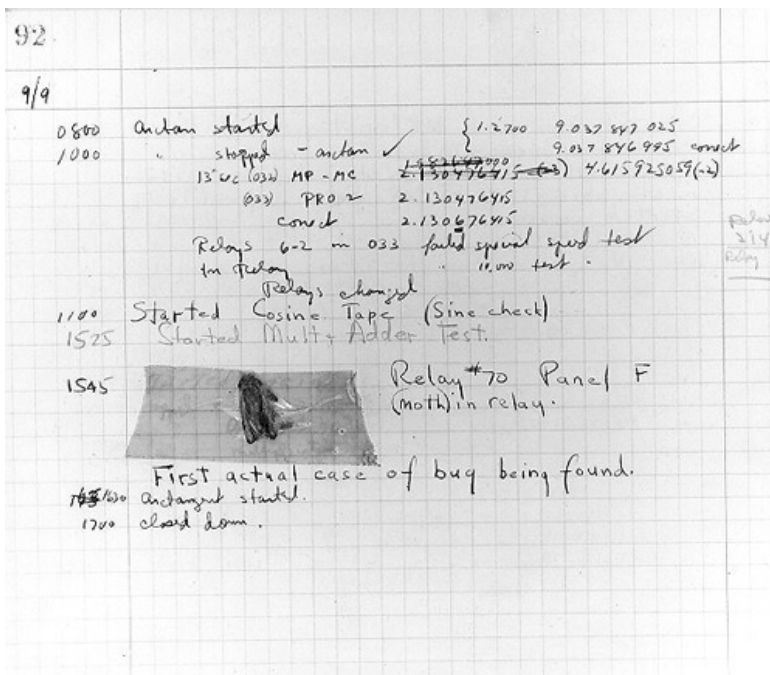 92
9/9
0800 antan started { 1.2700 9.037 847 025
1000 " stopped - antan ✓ 9.037 846 995 conect
13" uc (032) MP - MC 2.130476415 (-3) 4.615925059(-2)
(033) PRO 2 2.130476415
conect 2.130676415
Relays 6-2 in 033 failed special speed test
In Relay " 10.000 test .
Relays changed
1100 Started Cosine Tape (Sine check)
1525 Started Mult + Adder Test.
1545 Relay #70 Panel F
(moth) in relay.
First actual case of bug being found.
1630 antangent started.
1700 closed down .
Relay
Relay